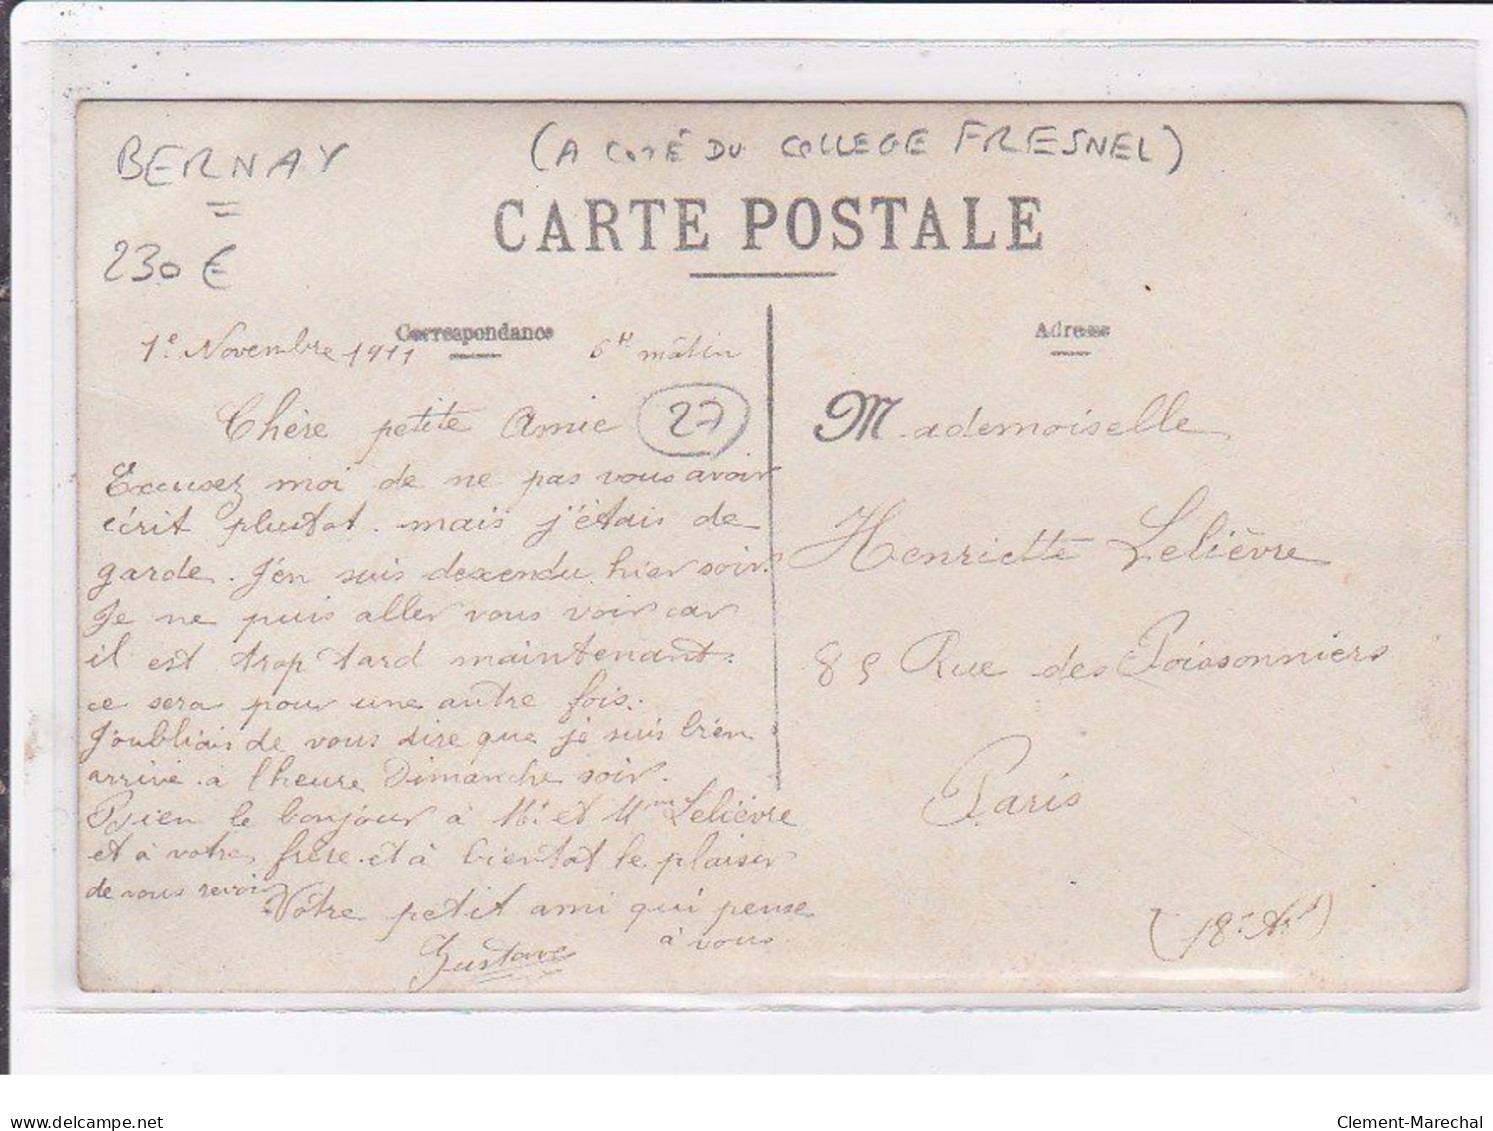 BERNAY
(A COTÉ DU COLLEGE FRESNEL)
230 €
CARTE POSTALE
Correspondance
1e Novembre 1911 6H mâtin
Chère petite Amie
27
Excusez moi de ne pas vous avoir
écrit plustot. mais j'étais de
garde. J'en suis dexendu hier soir.
Je ne puis aller vous voir car
il est trop tard maintenant.
ce sera pour une autre fois.
J'oubliais de vous dire que je suis bien
arrivé à l'heure Dimanche soir.
Bien le bonjour à Mr et Mme Lelièvre
et à votre frère et à bientot le plaisir
de vous revoir
Votre petit ami qui pense
à vous
Gustave
Adresse
Mademoiselle
Henriette Lelièvre
85 Rue des Poissonniers
Paris
(18e Art)
delcampe.net
Clement-Marechal